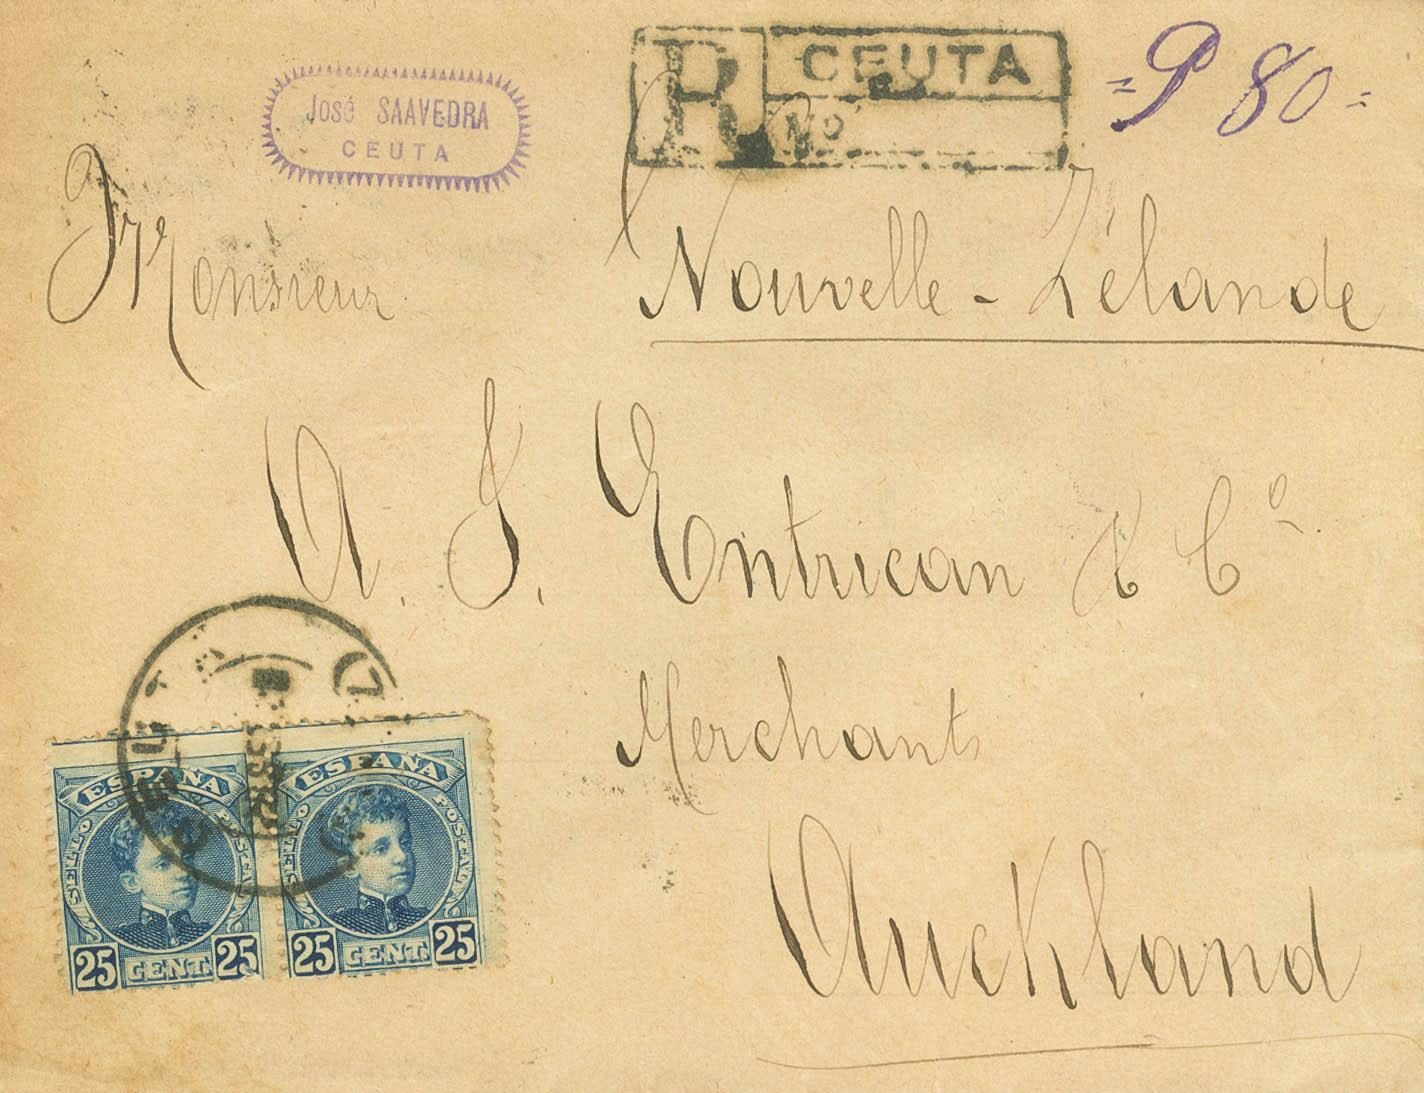 José SAAVEDRA
CEUTA
R CEUTA
Nº
= P 80 =
Monsieur
Nouvelle-Zélande
A. J. Entrican & Cº
Merchants
Auckland
ESPAÑA
SELLO POSTAL
25 CENT. 25
ESPAÑA
SELLO POSTAL
25 CENT. 25